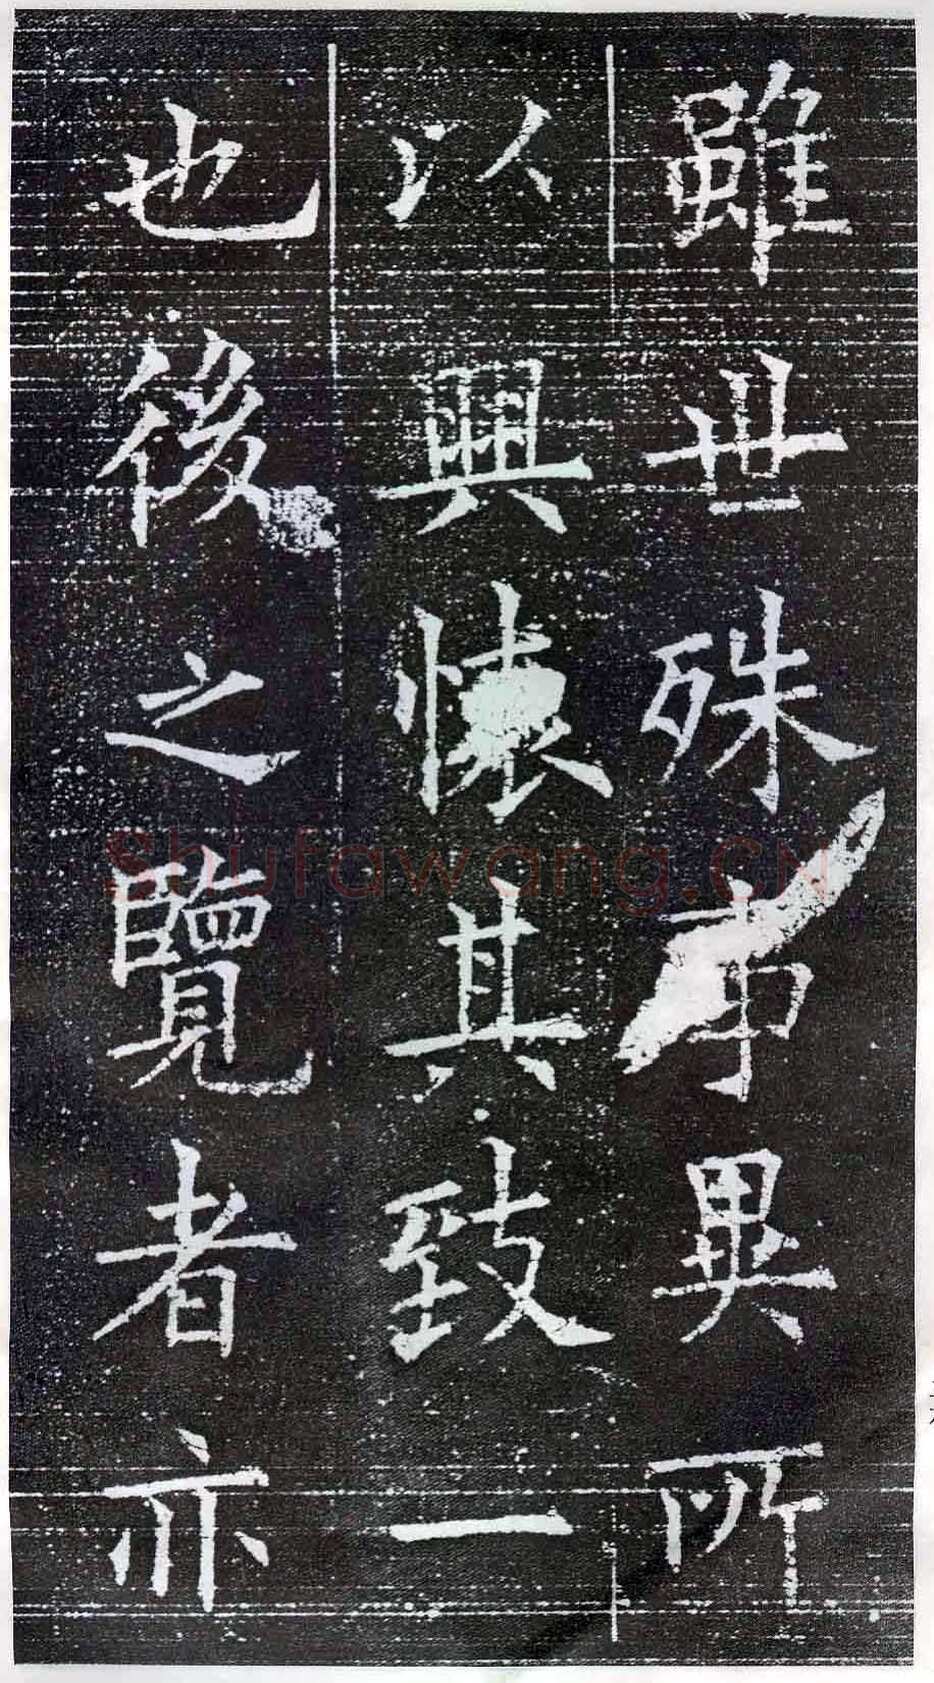 雖世殊事異所
以興懷其致一
也後之覽者亦
Shufawang.CN